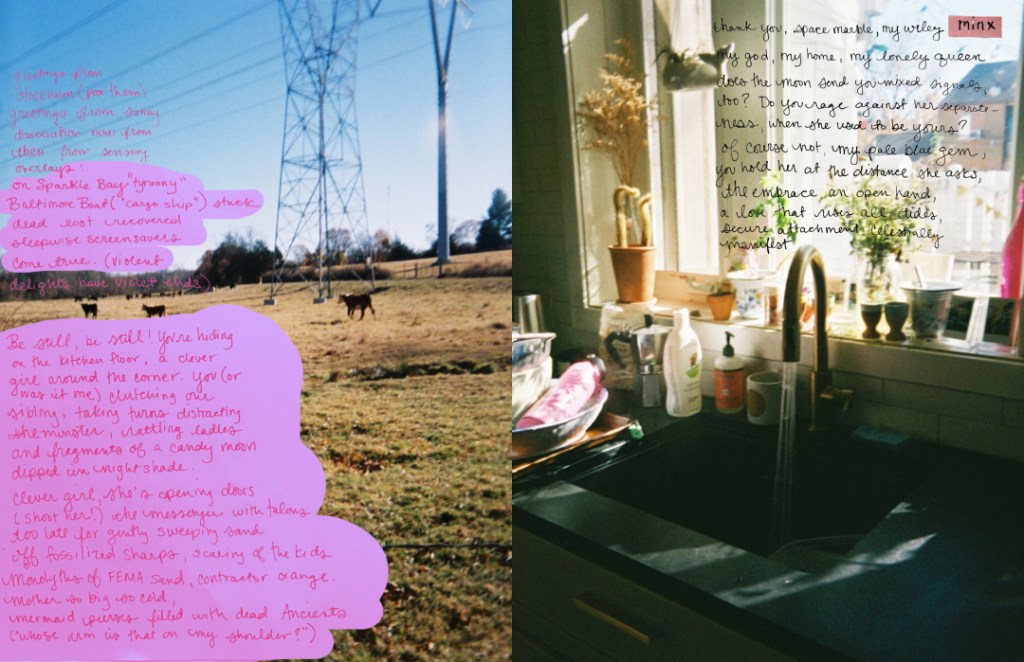 greetings from
Stockholm (poor them)
greetings from sunny
dissociation now from
then from sensory
overlays:
on Sparkle Bay "tyranny"
Baltimore Boat ("cargo ship") stuck
dead lost recovered
sleepwise screensavers
come true. (violent
delights have violet ends).
Be still, be still! You're hiding
on the kitchen floor, a clever
girl around the corner. You (or
was it me) clutching our
sibling, taking turns distracting
the monster, rattling ladles
and fragments of a candy moon
dipped in nightshade.
Clever girl, she's opening doors
(shoot her!) the messenger with talons
too late for gently sweeping sand
off fossilized sharps, scaring off the kids
Monolyths of FEMA sund, contractor orange.
Mother so big so cold,
mermaid purses filled with dead Ancients
("whose arm is that on my shoulder?")
thank you, space marble, my wiley minx
my god, my home, my lonely queen
does the moon send you mixed signals,
too? Do you rage against her separate-
ness, when she used to be yours?
of course not, my pale blue gem,
you hold her at the distance she asks,
the embrace an open hand,
a love that uses all tides,
secure attachment celestially
manifest